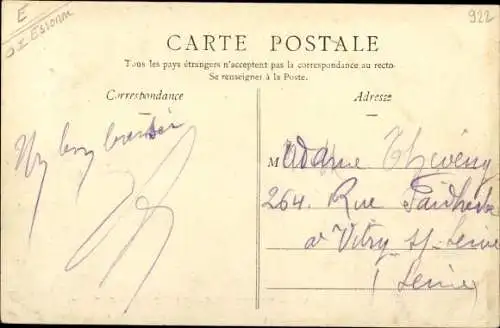 E
922
CARTE POSTALE
Tous les pays étrangers n'acceptent pas la correspondance au recto.
Se renseigner à la Poste.
Correspondance
Adresse
Un bon baiser
Madame Thévény
264. Rue
à Vitry s/ Seine
(Seine)